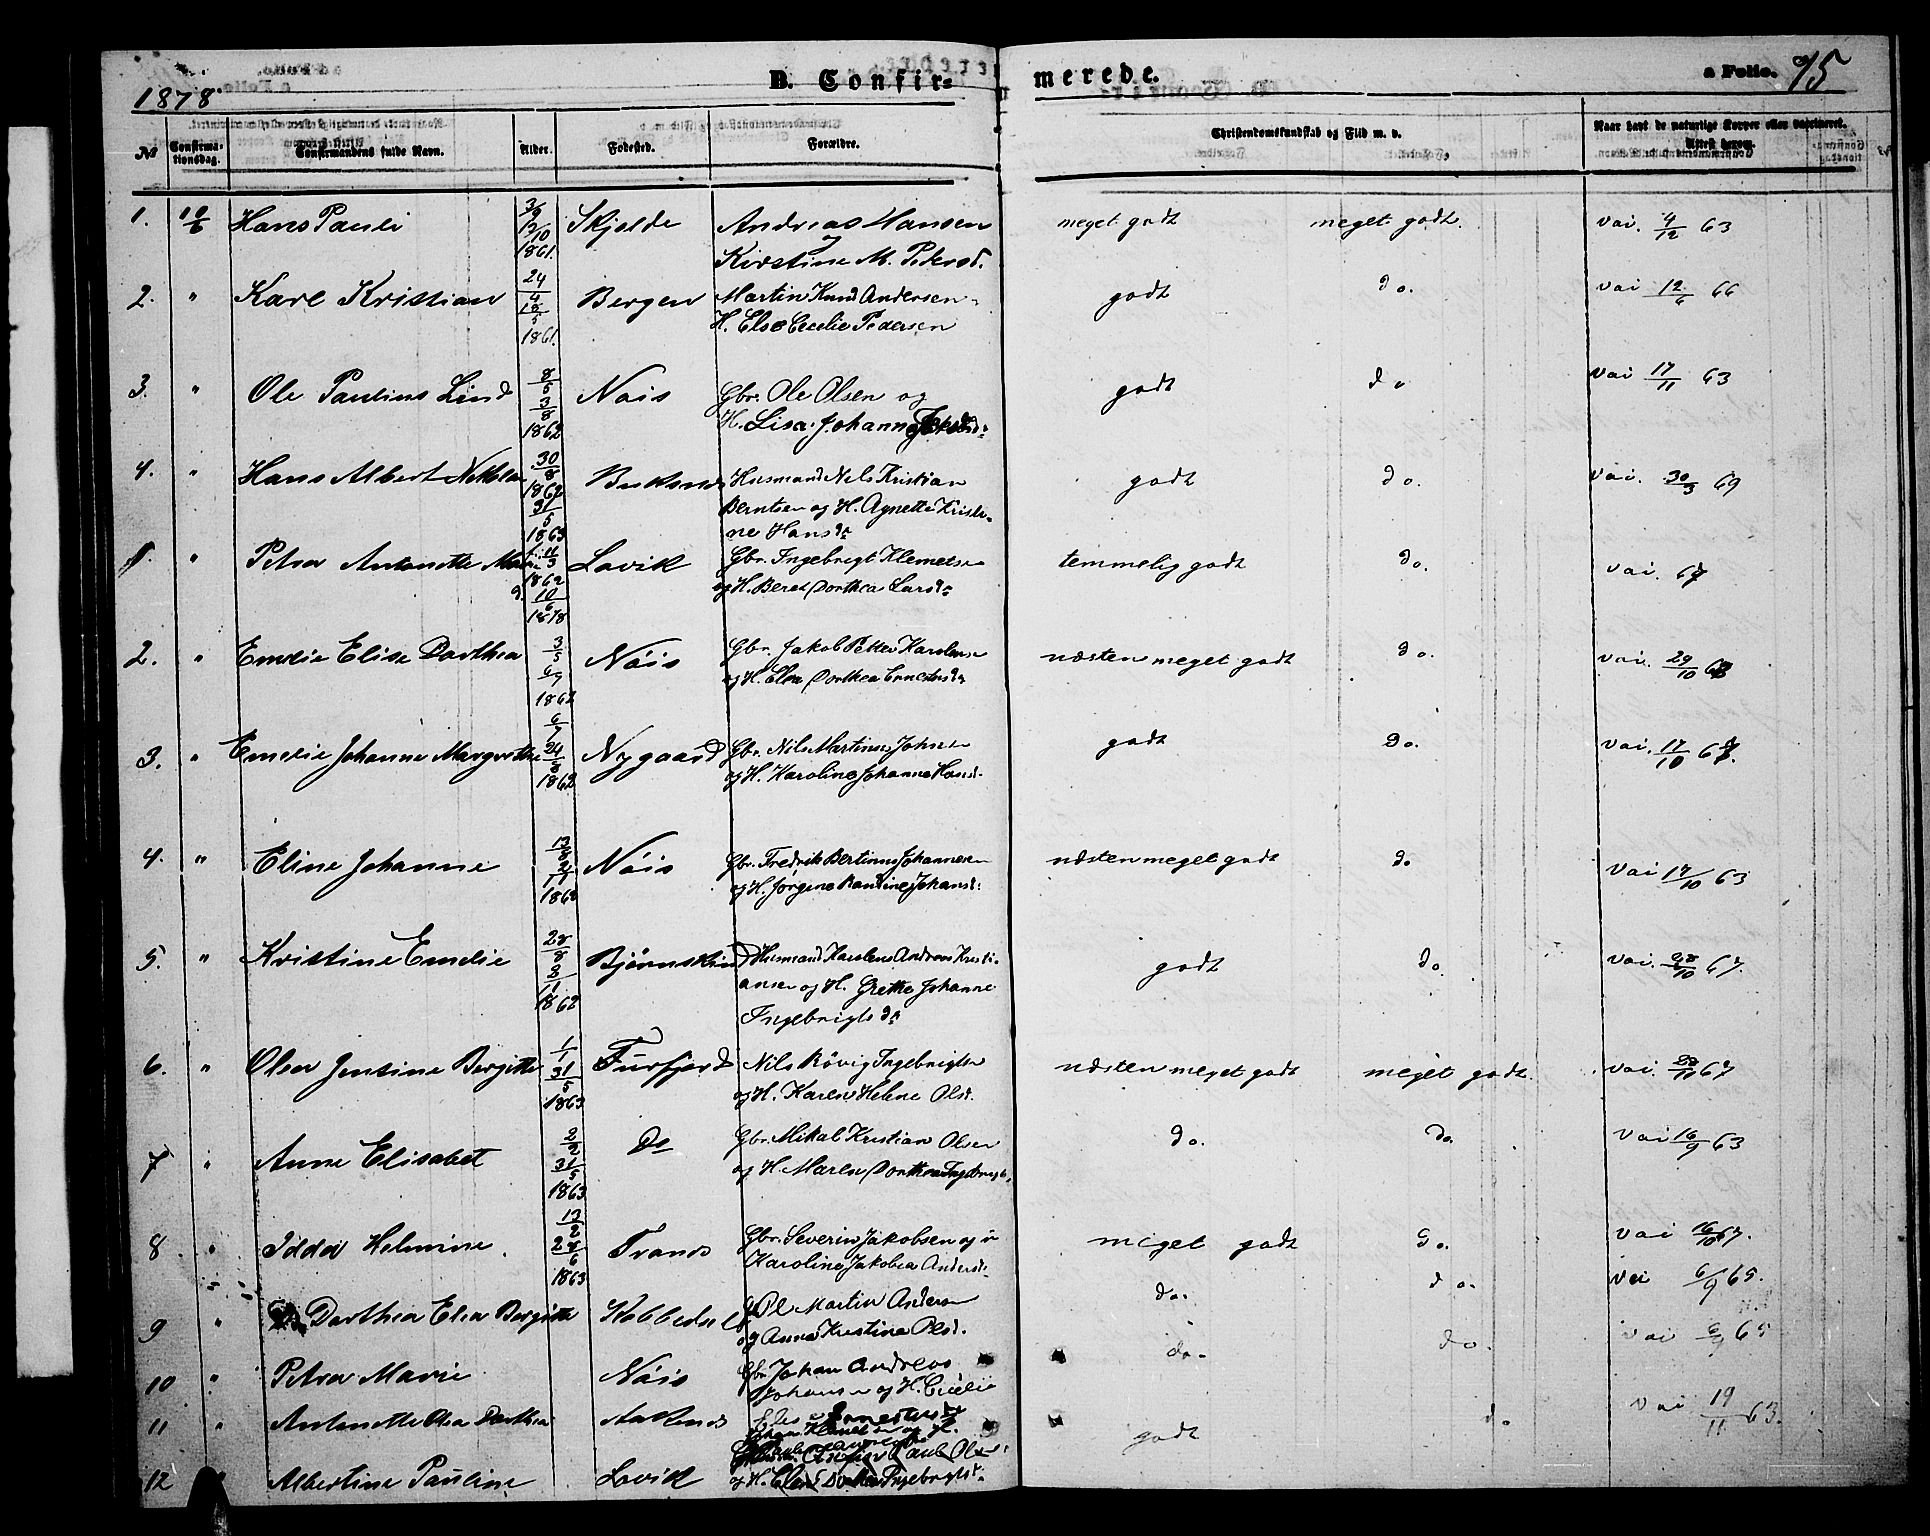 1878.
B. Confirmerede.
a Folio. 95
No
Confirmationsdag.
Confirmandens fulde Navn.
Alder.
Fødested.
Forældre.
Christendomskundskab og Flid m. v.
Naar havt de naturlige Kopper eller vaccineret.
Attest herom.
1. 10/6 Hans Pauli 3/9 13/10 1861. Skjolde Andreas Hansen meget godt meget godt. vai. 4/12 63
Kirstine M. Pedersd.
2. " Karl Kristian 24/4 18/5 1861. Bergen Martin Knud Andersen godt do. vai 12/6 66
H. Else Cecilie Pedersen
3. " Ole Paulius Lind 8/5 3/8 1862 Nøis Gbr. Ole Olsen og godt do vai 17/11 63
H. Lisa Johanna
4. " Hans Albert 30/8 1862 31/5 1863 Buksnes Husmand Nils Kristian godt do. vai. 30/3 69
Berntsen og H. Agnette Kristi-
ne Hansdr
1. " Petra Antonette 11/3 1862 d. 10/6 1878 Lovik Gbr. Ingebrigt Klemetsen temmelig godt do. vai. 67
og H. Beret Dorthea Larsdr
2. " Emelie Elise Dorthea 3/5 6/7 1862 Nøis Gbr. Jakob Petter Karolius næsten meget godt do. vai. 29/10 63
og H. Elen Dorthea Ernestsdr
3. " Emelie Johanne Margrethe 6/7 24/8 1862 Nygaard Gbr. Nils Martinus Johnsen godt do. vai. 17/10 67.
og H. Karoline Johanna Hansd.
4. " Eline Johanne 13/8 2/11 1862 Nøis Gbr. Fredrik Bertinus Johannesen næsten meget godt do vai 17/10 63
og H. Jørgine Pauline Johansd:
5. " Kristine Emelie 28/8 2/11 1862 Bjørnskind Husmand Karolius Andreas Kristi- godt do. vai. 28/10 67.
ansen og H. Grethe Johanne
Ingebrigtsdr
6. " Olea Jensine Bergitte 1/1 31/5 1863 Fiurfjord Nils Røvig Ingebrigtsen næsten meget godt meget godt. vai. 28/11 67
og H. Karen Helene Olsd.
7 " Anne Elisabet 2/2 31/5 1863 Do Gbr. Mikal Kristian Olsen do. do. vai 16/9 63
og H. Maren Dorthea Ingebrigts.
8 " Idda Helmine. 13/2 28/6 1863 Trands Gbr. Severin Jakobsen og meget godt do. vai 16/10 67.
Karoline Jakobea Andersd.
9 " Dorthea Elen Bergitte Kobbedal Martin Anders do. do. vai 6/9 65.
og Anna Kristina Olsd.
10 " Petra Marie Nøis Gbr Johan Andreas do. do. vai 6/9 65
Johansen og H. Cecilie
11 " Antonette Olea Dorthea Aakenes
12 " Albertine Pauline Lovik Paul Olsen godt do. vai 19/11 63.
og H. Elen Dorthea Ingebrigtsd.